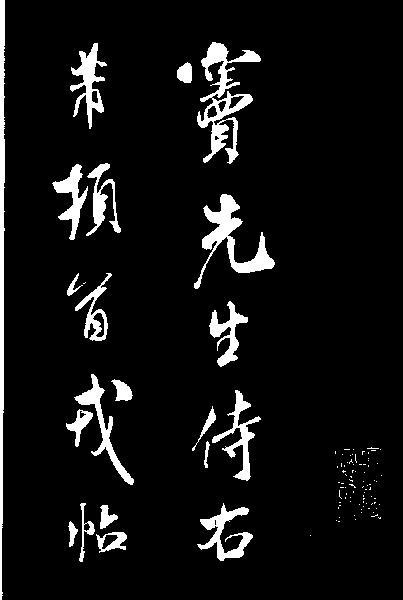 竇先生侍右
芾頓首戎帖